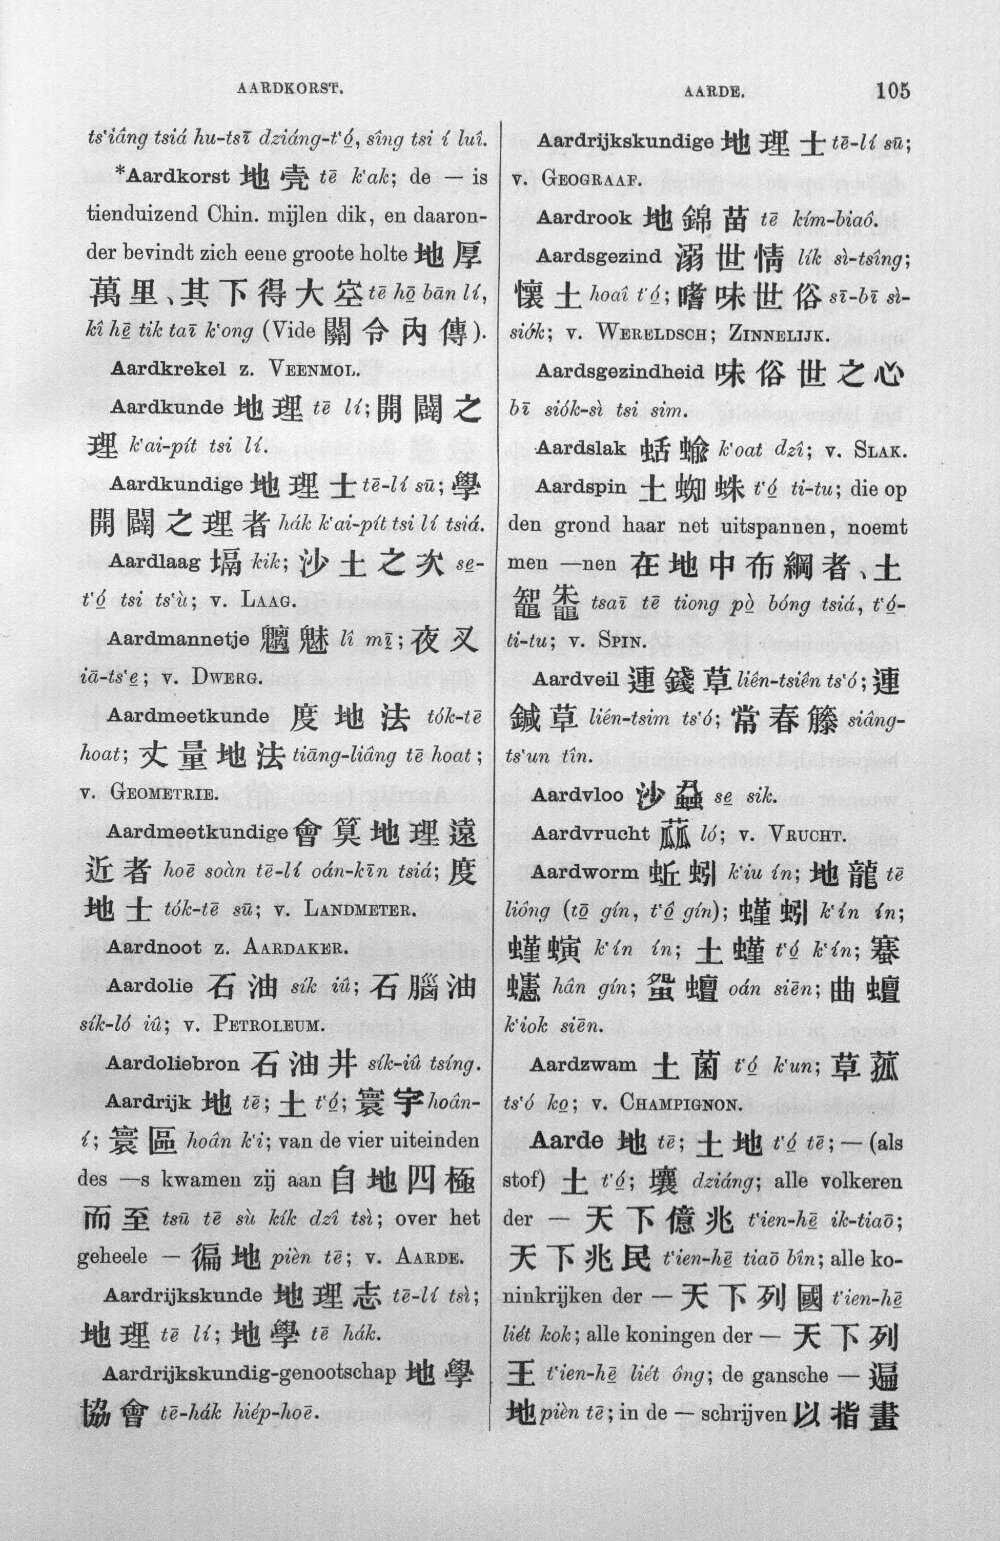 AARDKORST.
AARDE.
105
ts'iâng tsiá hu-tsī dziáng-t'ó, sîng tsi í luî.
*Aardkorst 地 壳 tē k'ak; de — is
tienduizend Chin. mijlen dik, en daaron-
der bevindt zich eene groote holte 地 厚
萬 里、其 下 得 大 空 tē hō bān lí,
kî hē tik taī k'ong (Vide 關 令 內 傳).
Aardkrekel z. VEENMOL.
Aardkunde 地 理 tē lí; 開 闢 之
理 k'ai-pít tsi lí.
Aardkundige 地 理 士 tē-lí sū; 學
開 闢 之 理 者 hák k'ai-pít tsi lí tsiá.
Aardlaag 塥 kik; 沙 土 之 次 se-
t'ó tsi ts'ù; v. LAAG.
Aardmannetje 魑 魅 lî mī; 夜 叉
iā-ts'e; v. DWERG.
Aardmeetkunde 度 地 法 tók-tē
hoat; 丈 量 地 法 tiāng-liâng tē hoat;
v. GEOMETRIE.
Aardmeetkundige 會 筭 地 理 遠
近 者 hoē soàn tē-lí oán-kīn tsiá; 度
地 士 tók-tē sū; v. LANDMETER.
Aardnoot z. AARDAKER.
Aardolie 石 油 sík iû; 石 腦 油
sík-ló iû; v. PETROLEUM.
Aardoliebron 石 油 井 sík-iû tsíng.
Aardrijk 地 tē; 土 t'ó; 寰 宇 hoân-
í; 寰 區 hoân k'i; van de vier uiteinden
des —s kwamen zij aan 自 地 四 極
而 至 tsū tē sù kík dzî tsì; over het
geheele — 徧 地 pièn tē; v. AARDE.
Aardrijkskunde 地 理 志 tē-lí tsì;
地 理 tē lí; 地 學 tē hák.
Aardrijkskundig-genootschap 地 學
協 會 tē-hák hiép-hoē.
Aardrijkskundige 地 理 士 tē-lí sū;
v. GEOGRAAF.
Aardrook 地 錦 苗 tē kím-biaô.
Aardsgezind 溺 世 情 lík sì-tsîng;
懷 土 hoaî t'ó; 嗜 味 世 俗 sī-bī sì-
siók; v. WERELDSCH; ZINNELIJK.
Aardsgezindheid 味 俗 世 之 心
bī siók-sì tsi sim.
Aardslak 蛞 蝓 k'oat dzî; v. SLAK.
Aardspin 土 蜘 蛛 t'ó ti-tu; die op
den grond haar net uitspannen, noemt
men —nen 在 地 中 布 網 者、土
鼅 鼄 tsaī tē tiong pò bóng tsiá, t'ó-
ti-tu; v. SPIN.
Aardveil 連 錢 草 liên-tsiên ts'ó; 連
鍼 草 liên-tsim ts'ó; 常 春 籐 siâng-
ts'un tîn.
Aardvloo 沙 蝨 se sik.
Aardvrucht 蓏 ló; v. VRUCHT.
Aardworm 蚯 蚓 k'iu ín; 地 龍 tē
liông (tō gín, t'ô gín); 螼 蚓 k'ín ín;
螼 螾 k'ín ín; 土 螼 t'ó k'ín; 蹇
蟪 hân gín; 蜸 蟺 oán siēn; 曲 蟺
k'iok siēn.
Aardzwam 土 菌 t'ó k'un; 草 菰
ts'ó ko; v. CHAMPIGNON.
Aarde 地 tē; 土 地 t'ó tē; — (als
stof) 土 t'ó; 壤 dziáng; alle volkeren
der — 天 下 億 兆 t'ien-hē ik-tiaō;
天 下 兆 民 t'ien-hē tiaō bîn; alle ko-
ninkrijken der — 天 下 列 國 t'ien-hē
liét kok; alle koningen der — 天 下 列
王 t'ien-hē liét ông; de gansche — 遍
地 pièn tē; in de — schrijven 以 指 畫